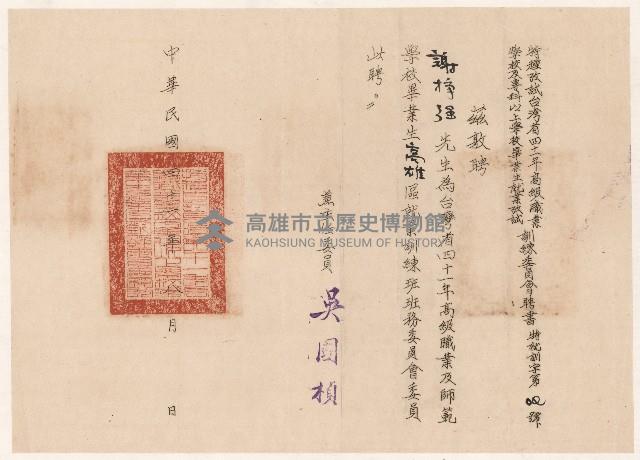 特種考試台灣省四十一年高級職業
學校及專科以上學校畢業生就業考試
訓練委員會聘書
特就訓字第 號
茲敦聘
謝掙強先生為台灣省四十一年高級職業及師範
學校畢業生高雄區就業訓練班班務委員會委員
此聘。
兼主任委員
吳國楨
中華民國四十 年 八 月 日
高雄市立歷史博物館
KAOHSIUNG MUSEUM OF HISTORY